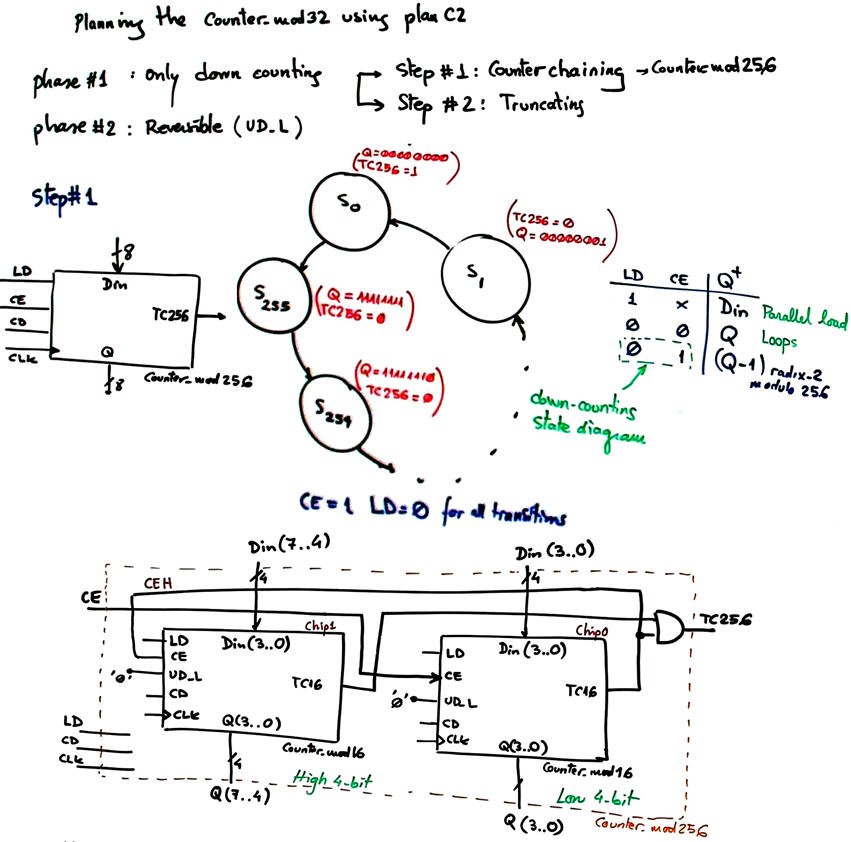 Planning the Counter_mod32 using plan C2
phase #1 : Only down counting
Step #1: Counter chaining → Counter_mod256
Step #2: Truncating
phase #2 : Reversible (UD_L)
Step#1
(Q=00000000
TC256=1)
S0
(TC256=0
Q=00000001)
S1
S255
(Q=11111111
TC256=0)
(Q=11111110
TC256=0)
S254
8
LD
CE
CD
CLK
Din
TC256
Q
8
Counter_mod256
LD CE Q+
1 x Din Parallel load
0 0 Q Loops
0 1 (Q-1) radix-2
modulo 256
down-counting
state diagram
CE=1 LD=0 for all transitions
Din(7..4)
Din(3..0)
4
4
CEH
CE
TC256
Chip1
LD
CE
UD_L
CD
CLK
'0'
Din(3..0)
TC16
Q(3..0)
Counter_mod16
Chip0
LD
CE
UD_L
CD
CLK
'0'
Din(3..0)
TC16
Q(3..0)
Counter_mod16
LD
CD
CLK
4
High 4-bit
Low 4-bit
Q(7..4)
Q(3..0)
Counter_mod256